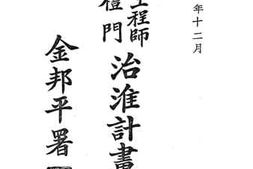 年十二月
工程師
門
治淮計畫
金邦平署